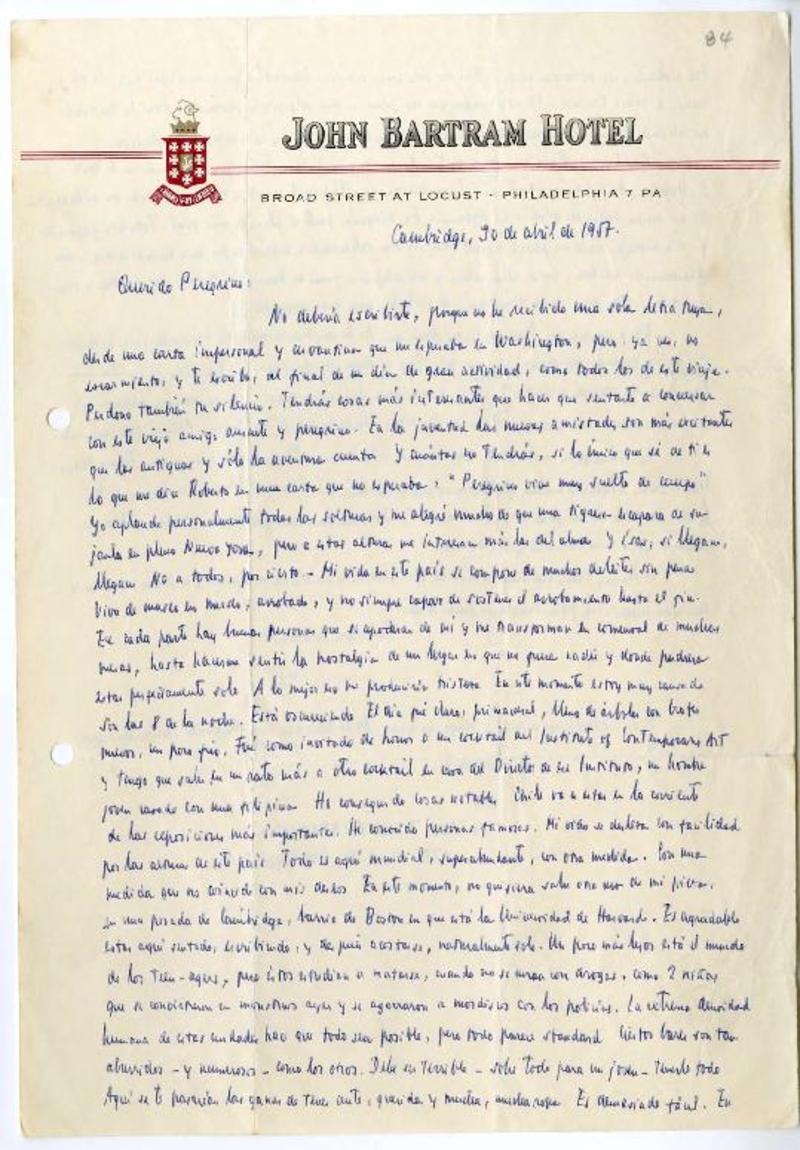 84
JOHN BARTRAM HOTEL
BROAD STREET AT LOCUST · PHILADELPHIA 7 PA
Cambridge, 30 de abril de 1957.
Querido Peregrino:
No debería escribirte, porque no he recibido una sola letra tuya,
desde una carta impersonal y que me esperaba en Washington, pero ya ves, no
escarmiento, y te escribo, al final de un día de gran actividad, como todos los de este viaje.
Perdono también tu silencio. Tendrás cosas más interesantes que hacer que sentarte a conversar
con este viejo amigo ausente y peregrino. En la juventud las nuevas amistades son más excitantes
que las antiguas y sólo la aventura cuenta Y cuántas no tendrás, si lo único que sé de ti es
lo que me dice Roberto en una carta que no esperaba: "Peregrino vive muy suelto de cuerpo"
Yo aplaudo personalmente todas las solturas y me alegré mucho de que una tigresa escapara de su
jaula en pleno Nueva York, pero a estas alturas me interesan más las del alma Y esas, si llegan,
llegan No a todos, por cierto - Mi vida en este país se compone de muchos deleites sin pena
Vivo de museo en museo, arrobado, y no siempre capaz de sostener el arrobamiento hasta el fin.
En cada parte hay buenas personas que se apoderan de mí y me transforman en comensal de muchas
mesas, hasta hacerme sentir la nostalgia de un lugar en que no viera nadie y donde pudiera
estar perfectamente solo A lo mejor eso me produciría tristeza En este momento estoy muy cansado
son las 8 de la noche. Está oscureciendo El día fué claro, primaveral, lleno de árboles con brotes
nuevos, un poco frío. Fuí como invitado de honor a un cocktail del Institute of Contemporary Art
y tengo que salir en un rato más a otro cocktail en casa del Director de ese Instituto, un hombre
joven casado con una filipina He conseguido cosas notables Chile va a estar en la corriente
de las exposiciones más importantes. He conocido personas famosas. Mi vida se desliza con facilidad
por las alturas de este país Todo es aquí mundial, superabundante, con otra medida. Con una
medida que no coincide con mis deseos En este momento, no quisiera salir otra vez de mi pieza,
en una posada de Cambridge, barrio de Boston en que está la Universidad de Harvard. Es agradable
estar aquí sentado, escribiendo, y después acostarse, naturalmente solo. Un poco más lejos está el mundo
de los Teen-agers, pero éstos estudian a matarse, cuando no se curan con drogas, como 2 niñas
que se convirtieron en monstruos ayer y se agarraron a mordiscos con los policías. La extrema densidad
humana de estas ciudades hace que todo sea posible, pero todo parece standard Ciertos bares son tan
aburridos - y numerosos - como los otros. Debe ser terrible - sobre todo para un joven - tenerlo todo
Aquí se te pasarían las ganas de tener auto, querida y mucha, mucha ropa Es demasiado fácil. En